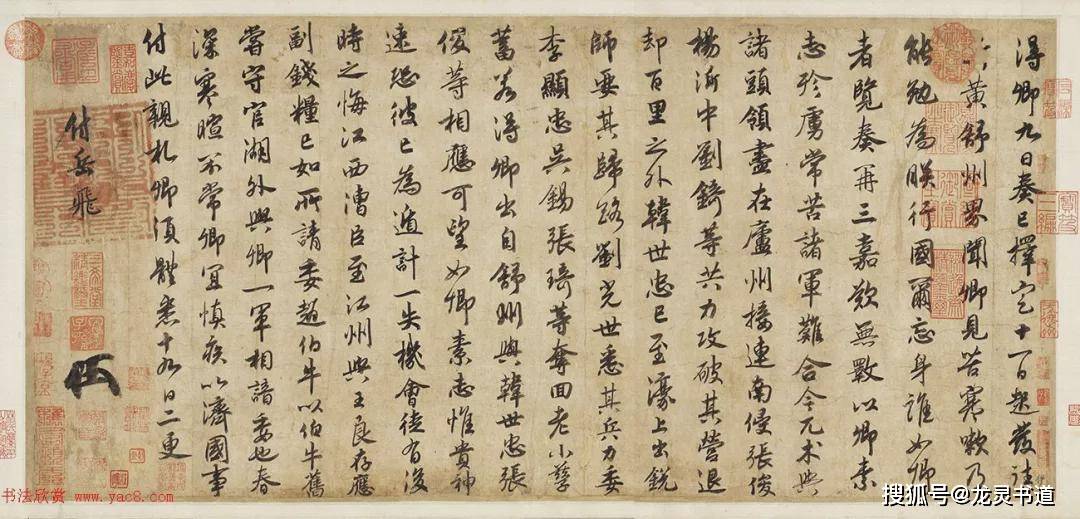 得卿九日奏已擇定十一日起發往
蘄黃舒州界聞卿見苦寒嗽乃
能勉為朕行國爾忘身誰如卿
者覽奏再三嘉歎無斁以卿素
志殄虜常苦諸軍難合今兀术與
諸頭領盡在廬州接連南侵張俊
楊沂中劉錡等共力攻破其營退
却百里之外韓世忠已至濠上出銳
師要其歸路劉光世悉其兵力委
李顯忠吳錫張琦等奪回老小孳
畜若得卿出自舒州與韓世忠張
俊等相應可望如卿素志惟貴神
速恐彼已為遁計一失機會徒有後
時之悔江西漕臣至江州與王良存應
副錢糧已如所請委趙伯牛以伯牛舊
嘗守官湖外與卿一軍相諳委也春
深寒暄不常卿宜慎疾以濟國事
付此親札卿須體悉十九日二更
付岳飛
书法欣赏 www.yac8.com
搜狐号@龙灵书道